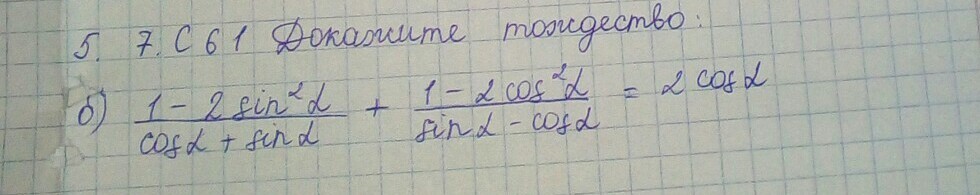 5. 7. С 61 Докажите тождество:
б) (1 - 2 sin²α)/(cosα + sinα) + (1 - 2 cos²α)/(sinα - cosα) = 2 cosα